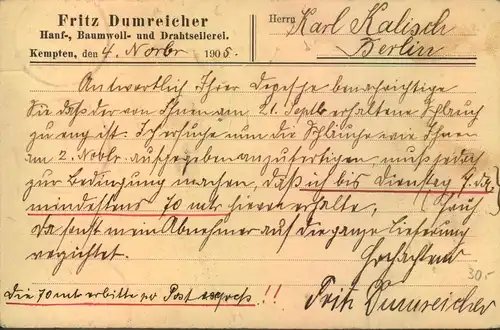 Fritz Dumreicher
Hanf-, Baumwoll- und Drahtseilerei.
Kempten, den 4. Novbr 1905.
Herrn Karl Kalisch
Berlin
Antwortlich Ihrer Depesche benachrichtige
Sie daß der von Ihnen am 21. Septb erhaltene Schlauch
zu eng ist. Ich ersuche nun die Schläuche wie Ihnen
am 2. Novbr. aufgegeben anzufertigen, muß jedoch
zur Bedingung machen, daß ich bis Dienstag 7. ds
mindestens 70 mtr hievon erhalte, früh
da sonst mein Abnehmer auf die ganze Lieferung
verzichtet.
Hochachtend
Fritz Dumreicher
Die 70 mt erbitte per Post express!!
30.-